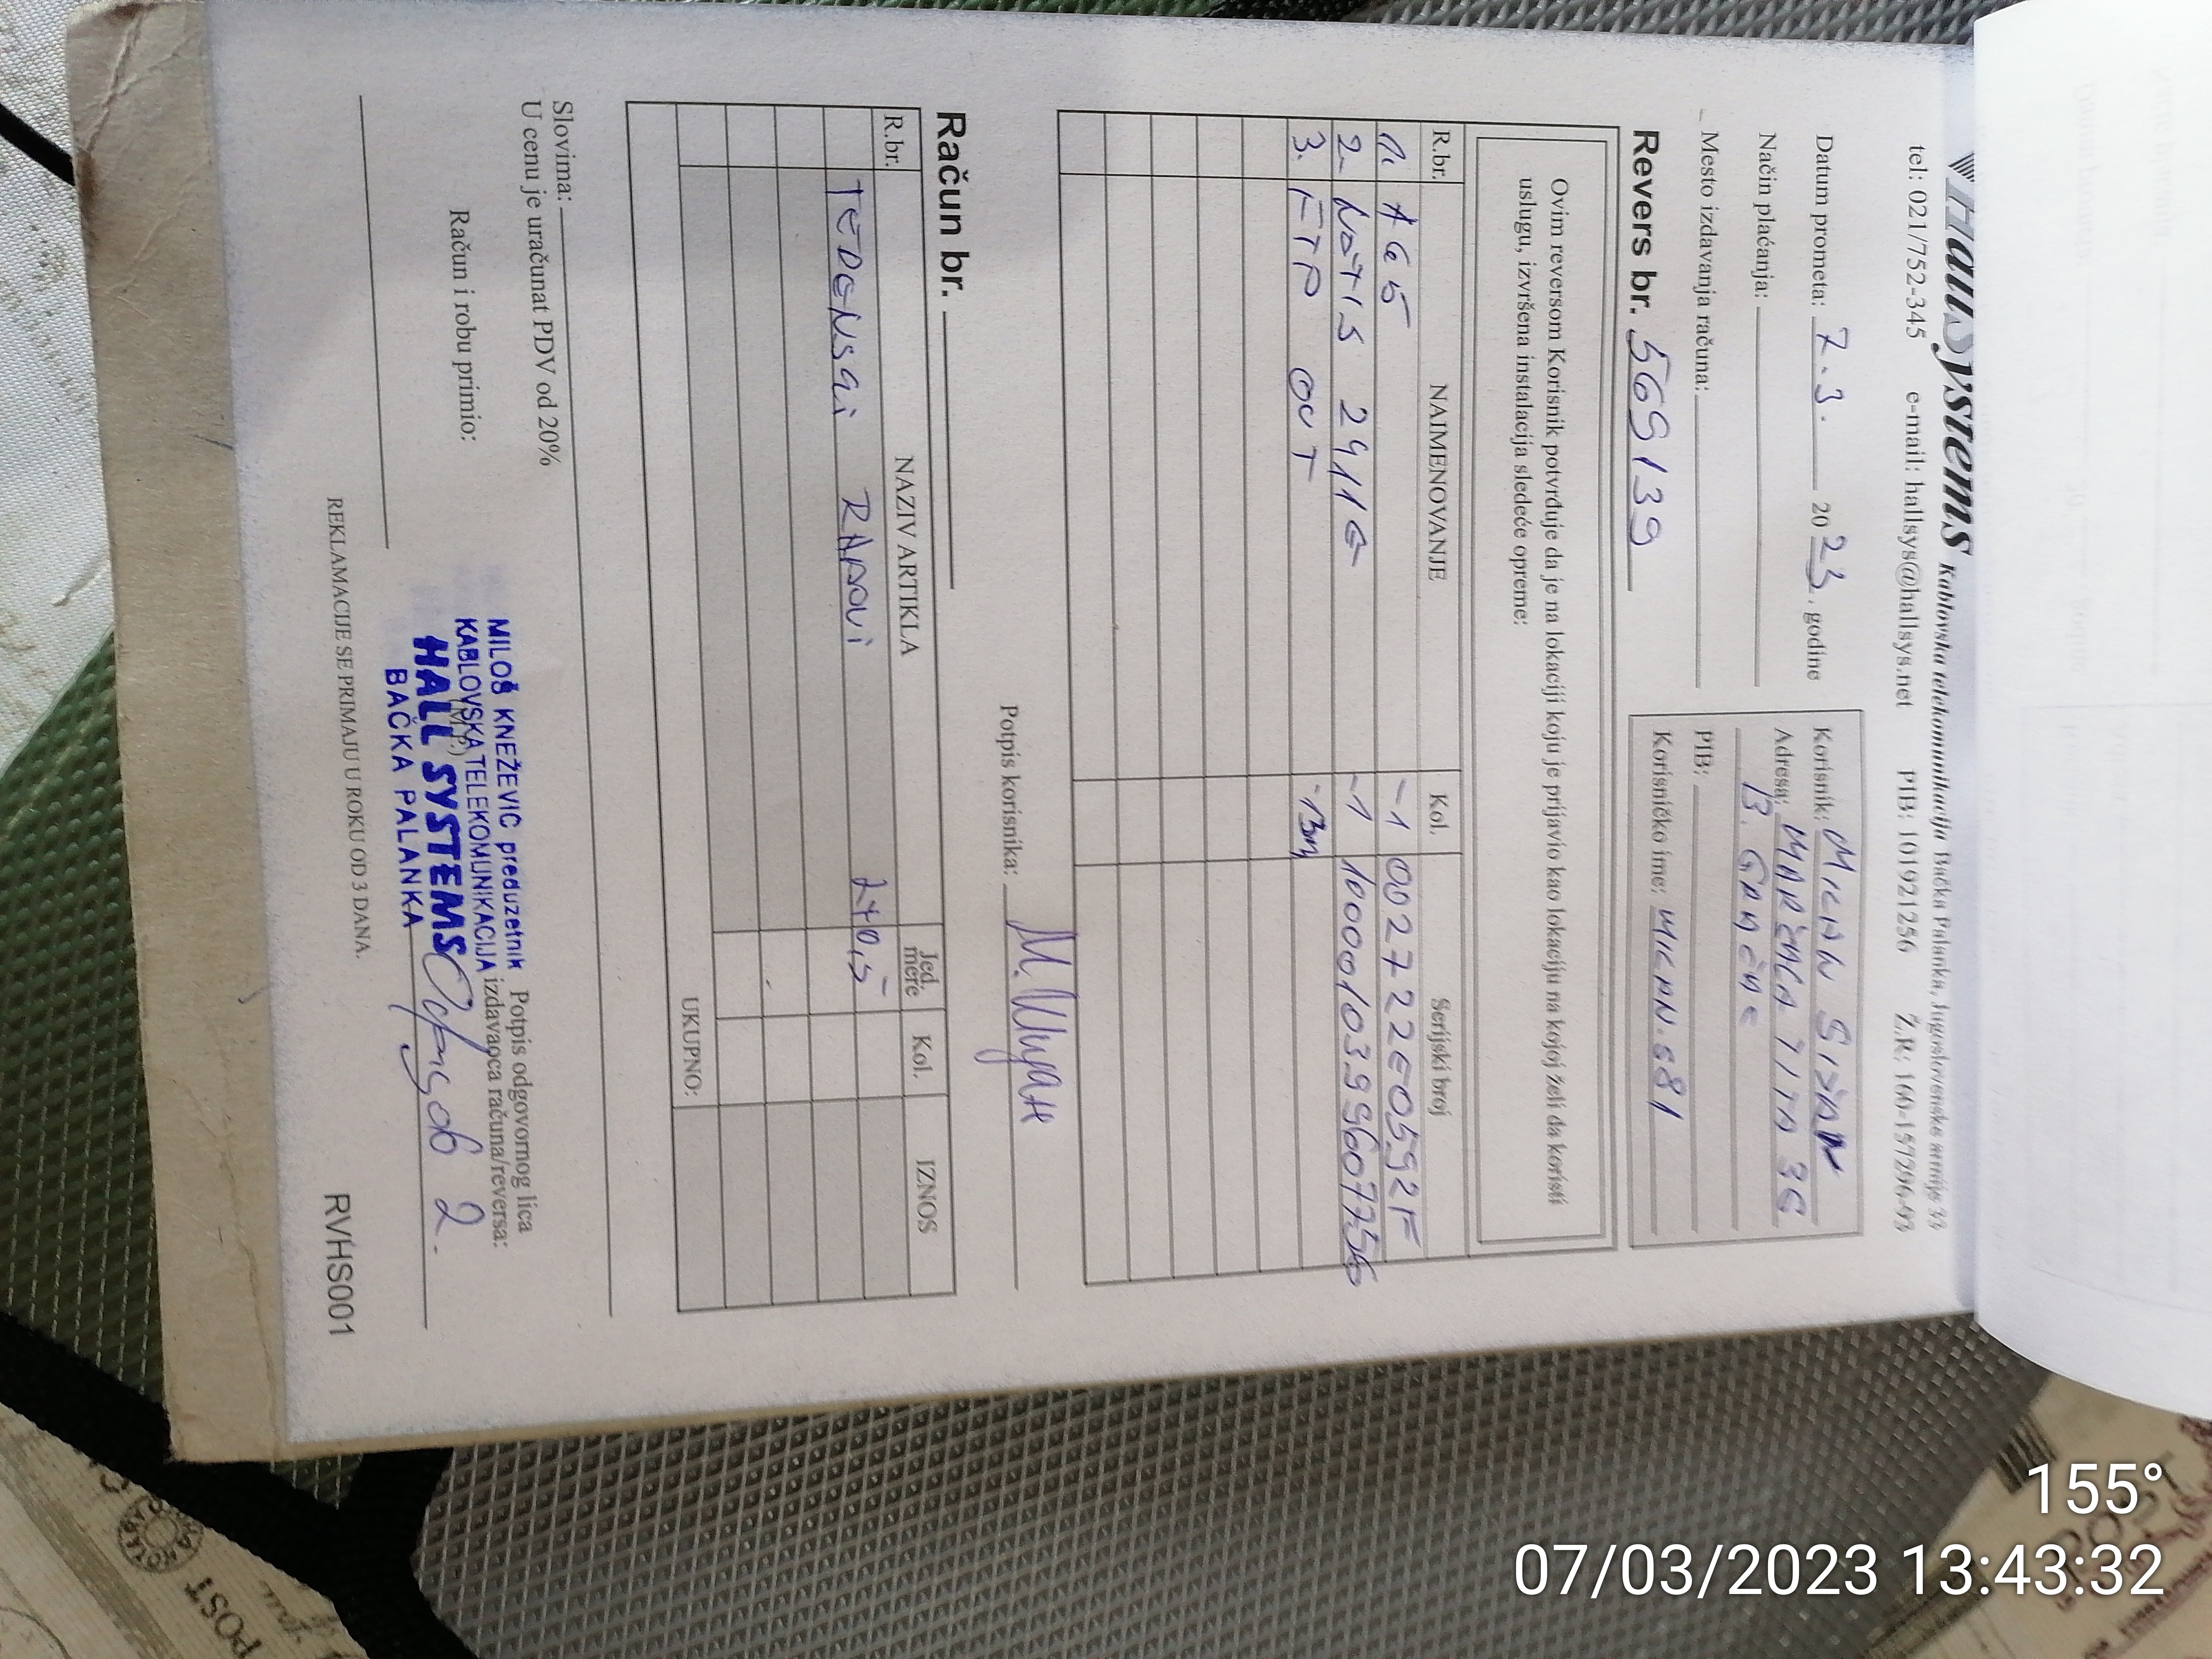 HallSystems Kablovska telekomunikacija Bačka Palanka, Jugoslovenske armije 33
tel: 021/752-345 e-mail: hallsys@hallsys.net PIB: 101921256 Ž.R: 160-157296-93
Datum prometa: 7.3. 2023. godine
Način plaćanja:
Mesto izdavanja računa:
Korisnik: MILAN
Adresa: MARŠALA TITA 36
B. GRADAC
PIB:
Korisničko ime: MILAN.681
Revers br. 569139
Ovim reversom Korisnik potvrđuje da je na lokaciji koju je prijavio kao lokaciju na kojoj želi da koristi
uslugu, izvršena instalacija sledeće opreme:
R.br. NAIMENOVANJE Kol. Serijski broj
1. AG5 -1 0027222E0592F
2. 2411G -1 1000010399607756
3. FTP OUT -13m
Potpis korisnika:
Račun br.
R.br. NAZIV ARTIKLA Jed. mere Kol. IZNOS
RADOVI
UKUPNO:
Slovima:
U cenu je uračunat PDV od 20%
Račun i robu primio:
Potpis odgovornog lica
izdavaoca računa/reversa:
(M.P.)
MILOŠ KNEŽEVIĆ preduzetnik
KABLOVSKA TELEKOMUNIKACIJA
HALL SYSTEMS
BAČKA PALANKA
REKLAMACIJE SE PRIMAJU U ROKU OD 3 DANA.
RVHS001
POST
155°
07/03/2023 13:43:32